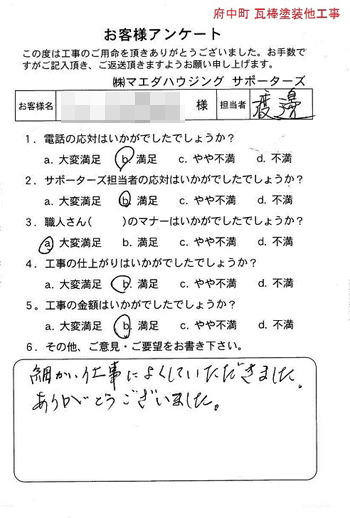 府中町 瓦棒塗装他工事
お客様アンケート
この度は工事のご用命を頂きありがとうございました。お手数で
すがご記入頂き、ご返送頂きますようお願い申し上げます。
㈱マエダハウジング サポーターズ
お客様名 様 担当者 渡邊
1．電話の応対はいかがでしたでしょうか？
a. 大変満足 b. 満足 c. やや不満 d. 不満
2．サポーターズ担当者の応対はいかがでしたでしょうか？
a. 大変満足 b. 満足 c. やや不満 d. 不満
3．職人さん(　　　)のマナーはいかがでしたでしょうか？
a. 大変満足 b. 満足 c. やや不満 d. 不満
4．工事の仕上がりはいかがでしたでしょうか？
a. 大変満足 b. 満足 c. やや不満 d. 不満
5。工事の金額はいかがでしたでしょうか？
a. 大変満足 b. 満足 c. やや不満 d. 不満
6．その他、ご意見・ご要望をお書き下さい。
細かい仕事によくしていただきました。
ありがとうございました。